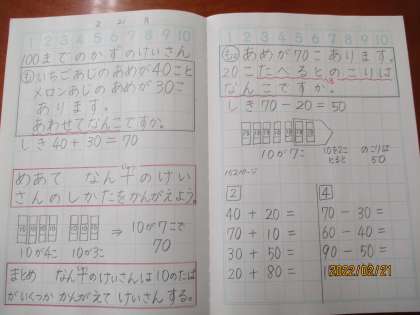 2 21 月
1 2 3 4 5 6 7 8 9 10
100までのかずのけいさん
いちごあじのあめが40こと
メロンあじのあめが 30こ
あります。
あわせてなんこですか。
しき 40 + 30 = 70
めあて なん十のけい
さんのしかたをかんがえよう。
10 10 10 10 10 10 10 ⇒ 10が7こで
10が4こ 10が3こ 70
まとめ なん十のけいさんは10のたば
がいくつか かんがえて けいさん する。
1 2 3 4 5 6 7 8 9 10
あめが70こ あります。
20こたべるとのこりは
なんこですか。
しき 70 - 20 = 50
10 10 10 10 10 10 10
10が7こ 10を2こ とると のこりは 50
2 4
40 + 20 = 70 - 30 =
70 + 10 = 60 - 40 =
30 + 50 = 90 - 50 =
20 + 80 =
2022/02/21